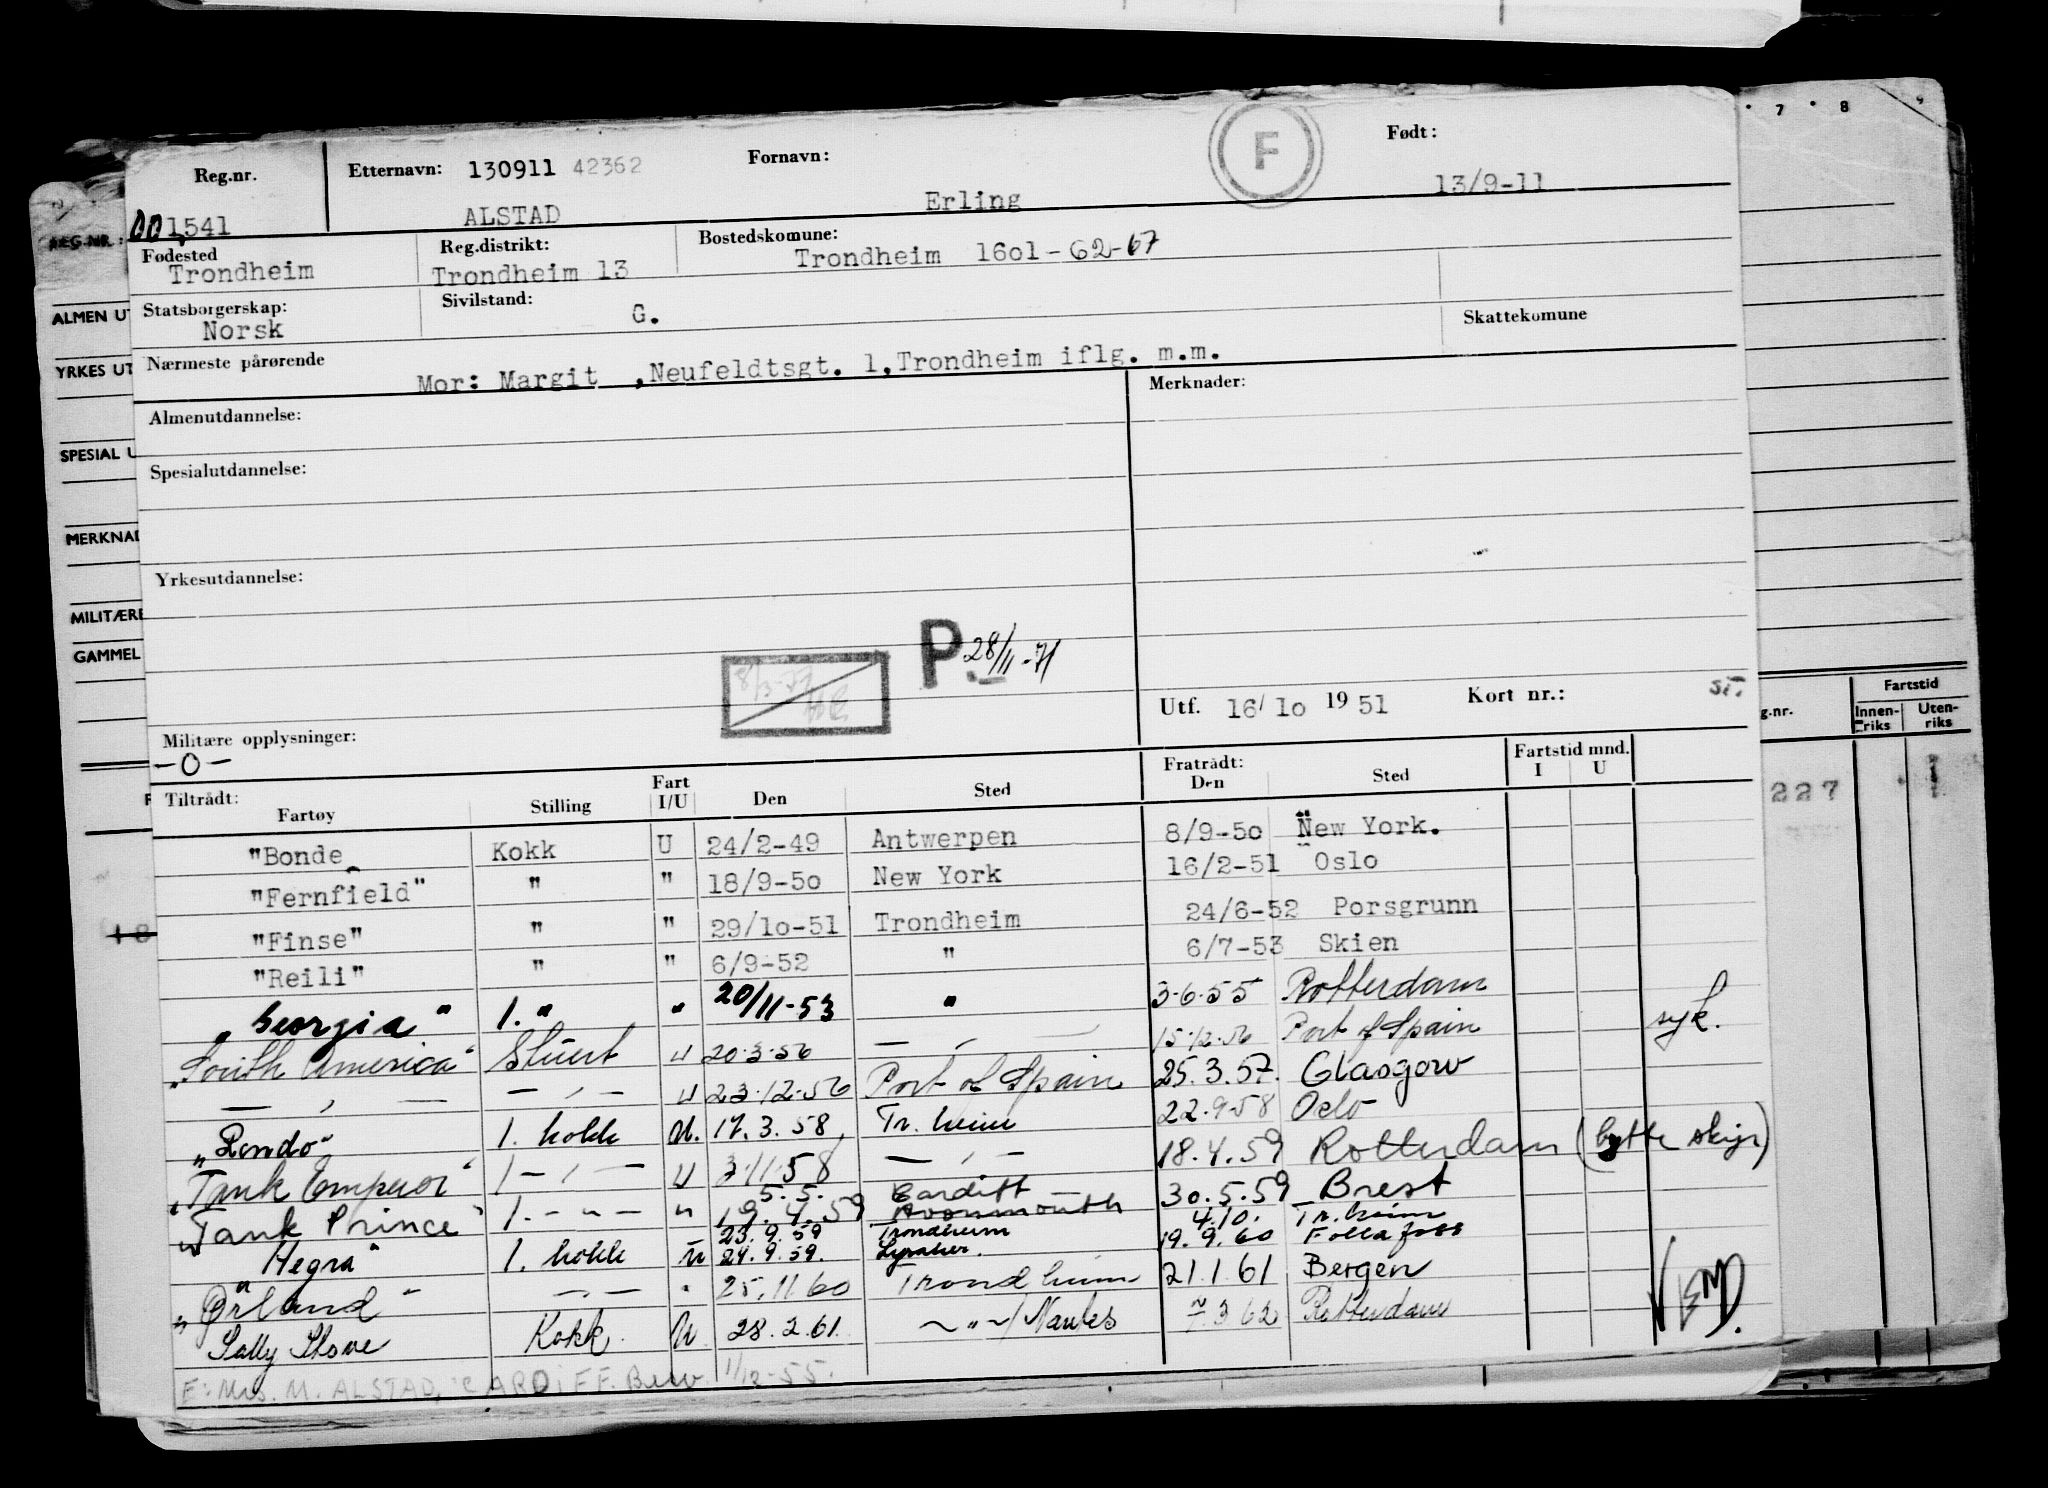 7 8 9
Reg.nr. Etternavn: 130911 42362 Fornavn: F Født:
001541 ALSTAD Erling 13/9-11
REG.NR.:
Fødested Reg.distrikt: Bostedskomune:
Trondheim Trondheim 13 Trondheim 1601-62-67
Statsborgerskap: Sivilstand: Skattekomune
ALMEN UT
Norsk G.
Nærmeste pårørende
YRKES UT
Mor: Margit ,Neufeldtsgt. 1,Trondheim iflg. m.m.
Almenutdannelse: Merknader:
SPESIAL U
Spesialutdannelse:
MERKNAD
Yrkesutdannelse:
MILITÆRE
GAMMEL
P. 28/11-71
8/3-77
Utf. 16/10 1951 Kort nr.:
Militære opplysninger:
-0-
g.nr. Fartstid
Innenriks Utenriks
Tiltrådt: Fartøy Stilling Fart I/U Den Sted Fratrådt: Den Sted Fartstid mnd. I U
227
"Bonde Kokk U 24/2-49 Antwerpen 8/9-50 New York.
"Fernfield" " " 18/9-50 New York 16/2-51 Oslo
"Finse" " " 29/10-51 Trondheim 24/6-52 Porsgrunn
18
"Reili" " " 6/9-52 " 6/7-53 Skien
"Georgia" 1. " " 20/11-53 " 3.6.55 Rotterdam
"South America" Stuert U 20.3.56 — , — 15.12.56 Port of Spain syk.
— , — — , — U 23.12.56 Port of Spain 25.3.57. Glasgow
"Rondo" 1. kokk U. 17.3.58, Tr.heim 22.9.58 Oslo
"Tank Emperor" 1 — , — U 3.11.58 — , — 18.4.59 Rotterdam (bytte skip)
"Tank Prince" 1. — " — " 5.5. 19.4.59 Cardiff Avonmouth 30.5.59 Brest
"Hegra" 1. kokk U 23.9.59 Trondheim 4.10. Tr.heim
24.9.59. Lysaker. 19.9.60 Follafoss
"Ørland" — , — " 25.11.60 Trondheim 21.1.61 Bergen
Sally Stove Kokk. U. 28.2.61. — " — / Nantes 7.3.62 Rotterdam
E: Mrs. M. ALSTAD, CARDIFF. 1/12-55.